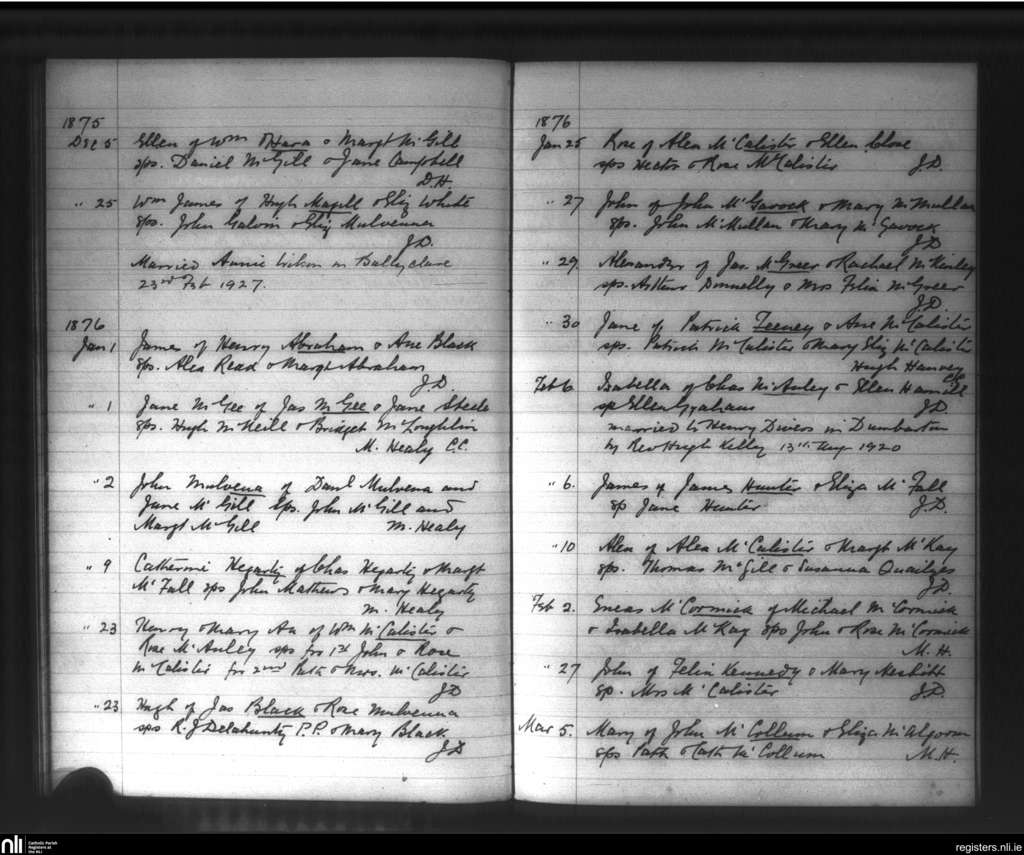 1875
Dec 5 Ellen of Wm O'Hara & Margt McGill
sps. Daniel McGill & Jane Campbell
D.H.
" 25 Wm James of Hugh Magill & Eliz White
sps. John Galvin & Eliz Mulvenna
J.D.
Married Annie Wilson in Ballyclare
23rd Feb 1927.
1876
Jan 1 James of Henry Abraham & Ane Black
sps. Alex Read & Margt Abraham
J.D.
" 1 Jane McGee of Jas McGee & Jane Steele
sps. Hugh McNeill & Bridget McLoughlin
M. Healy C.C.
" 2 John Mulvena of Danl Mulvena and
Jane McGill Sps. John McGill and
Margt McGill M. Healy
" 9 Catherine Hegarty of Chas Hegarty & Margt
McFall sps John Mathews & Mary Hegarty
M. Healy
" 23 Henry & Mary An of Wm McCalister &
Rose McAuley sps for 1st John & Rose
McCalister for 2nd Patk & Mrs. McCalister
J.D
" 23 Hugh of Jas Black & Rose Mulvenna
sps R. J Delahunty P.P. & Mary Black
J.D
1876
Jan 25 Rose of Alex McCalister & Ellen Close
sps Hector & Rose McCalister J.D.
" 27 John of John McGavock & Mary McMullan
sps. John McMullan & Mary McGavock
J.D
" 29. Alexander of Jas. McGreer & Rachael McKinley
sps. Arthur Donnelly & Mrs Felix McGreer
J.D.
" 30 Jane of Patrick Feeney & Ane McCalister
sps. Patrick McCalister & Mary Eliz McCalister
Hugh Harvey
CC
Feb 6 Isabella of Chas McAuley & Ellen Hamill
sp Ellen Grahams J.D
married to Henry Divers in Dumbarton
by Rev Hugh Kelly 13th Aug 1920
" 6. James of James Hunter & Eliza McFall
sp Jane Hunter J.D.
" 10 Alex of Alex McCalister & Margt McKay
sps. Thomas McGill & Susanna Quailyes
J.D.
Feb 2. Eneas McCormick of Michael McCormick
& Isabella McKay sps John & Rose McCormick
M.H.
" 27 John of Felix Kennedy & Mary Nesbitt
sp. Mrs McCalister J.D.
Mar 5. Mary of John McCollum & Eliza McAlgoron
sps Patk & Cath McCollum M.H.
nli Catholic Parish
Registers at
the NLI
registers.nli.ie